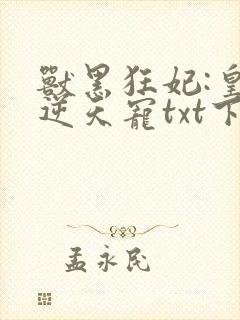 獸黑狂妃:皇
逆天寵txt下
孟永民